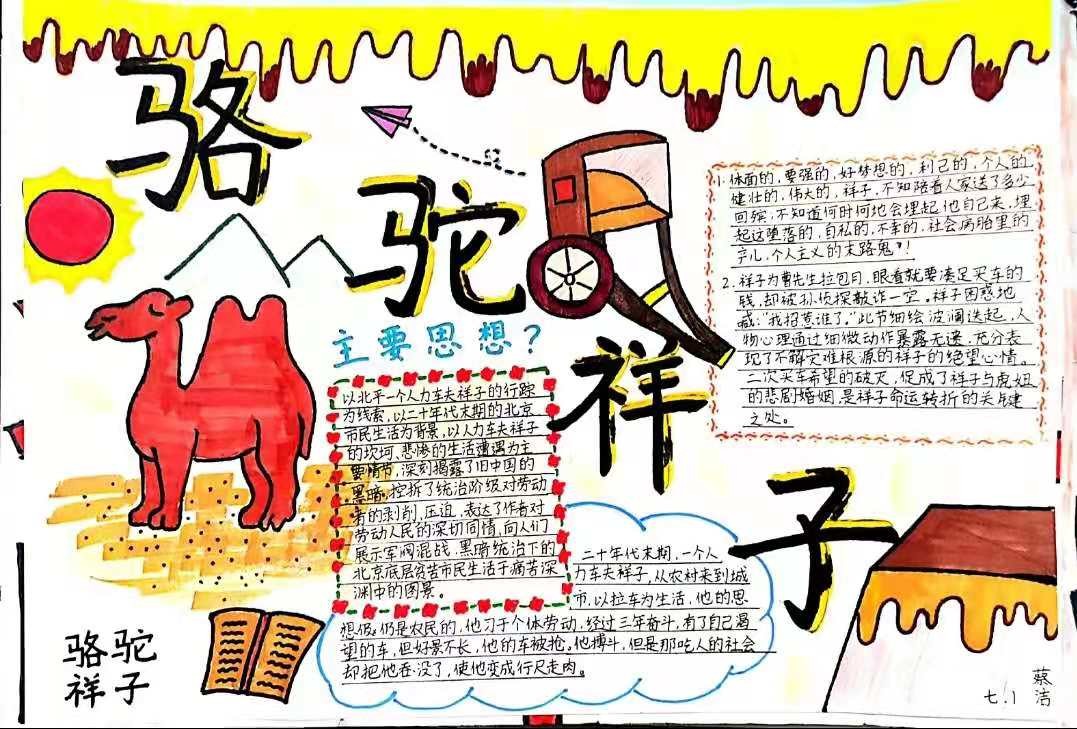 骆
驼
祥
子
主要思想？
以北平一个人力车夫祥子的行踪
为线索，以二十年代末期的北京
市民生活为背景，以人力车夫祥子
的坎坷、悲惨的生活遭遇为主
要情节，深刻揭露了旧中国的
黑暗，控拆了统治阶级对劳动
者的剥削、压迫，表达了作者对
劳动人民的深切同情，向人们
展示军阀混战、黑暗统治下的
北京底层贫苦市民生活于痛苦深
渊中的图景。
1.体面的，要强的，好梦想的，利己的，个人的，
健壮的，伟大的，祥子，不知陪着人家送了多少
回殡；不知道何时何地会埋起他自己来，埋
起这堕落的，自私的，不幸的，社会病胎里的
产儿，个人主义的末路鬼"！
2.祥子为曹先生拉包月，眼看就要凑足买车的
钱，却被孙侦探敲诈一空，祥子困惑地
喊："我招惹谁了。"此节细绘波澜迭起，人
物心理通过细微动作暴露无遗，充分表
现了不解灾难根源的祥子的绝望心情。
二次买车希望的破灭，促成了祥子与虎妞
的悲剧婚姻，是祥子命运转折的关键
之处。
二十年代末期，一个人
力车夫祥子，从农村来到城
市，以拉车为生活，他的思
想仍是农民的，他习于个体劳动，经过三年奋斗，有了自己渴
望的车，但好景不长，他的车被抢。他搏斗，但是那吃人的社会
却把他吞没了，使他变成行尸走肉。
骆驼
祥子
七.1
蔡洁